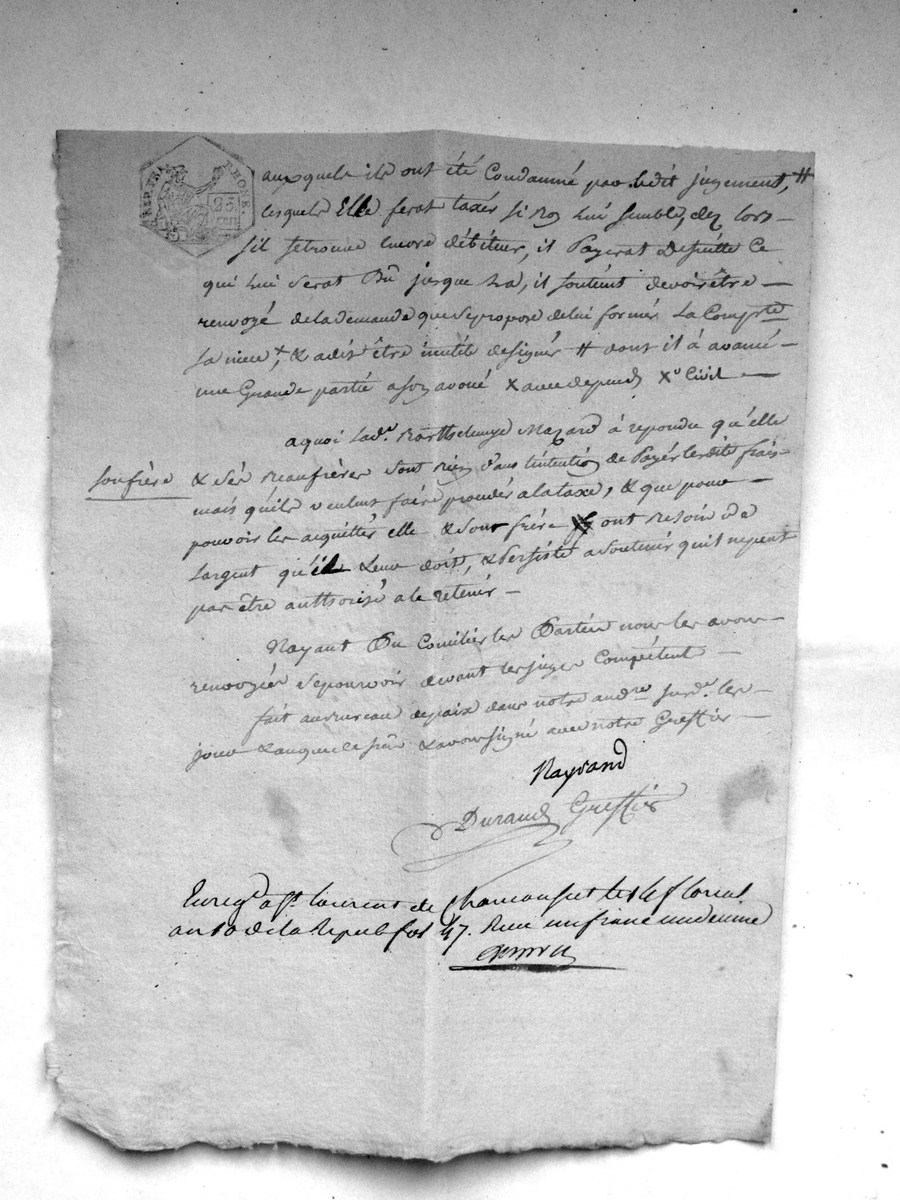 REP. FRA. RHONE.
25 cen
auxquels ils ont été Condamné par ledit jugement, #
lesquels Elle ferat taxés si Bon Lui semble, dez lors
sil setrouve encore débiteur, il Payerat Desuitte Ce
qui Lui serat Dû jusque La, il soutient devoir être
renvoyé de la demande que se propose de lui former La Comp.te
Sa niece, & a dit être inutile de signer # dont il à avancé
une Grande partié a son avoué X avec depend X Civil
aquoi Lad.e Barthelemye Mazard à repondu qu'elle
son frère
& ses Beaufrères sont Bien dans l'intention de Payér lesdits frais
mais qu'ils veulent faire procéder a la taxe, & que pour
pouvoir les acquittés elle & son frère ont Besoin de
Largent qu'il Leur doit, & Persiste a soutenir qu'il ne peut
pas être authorisé a le retenir
Nayant Pu Concilier les Parties nous les avons
renvoyées se pourvoir devant les juges Compétent
fait au Bureau de paix dans notre jurd. les
jour & an que dessus & avons signé avec notre Greffier
Bayrand
Durand Greffier
Enreg. a St. Laurent de Chamousset le 14 floreal
an 10 de la Repub. fol 47. Reçu un franc un decime